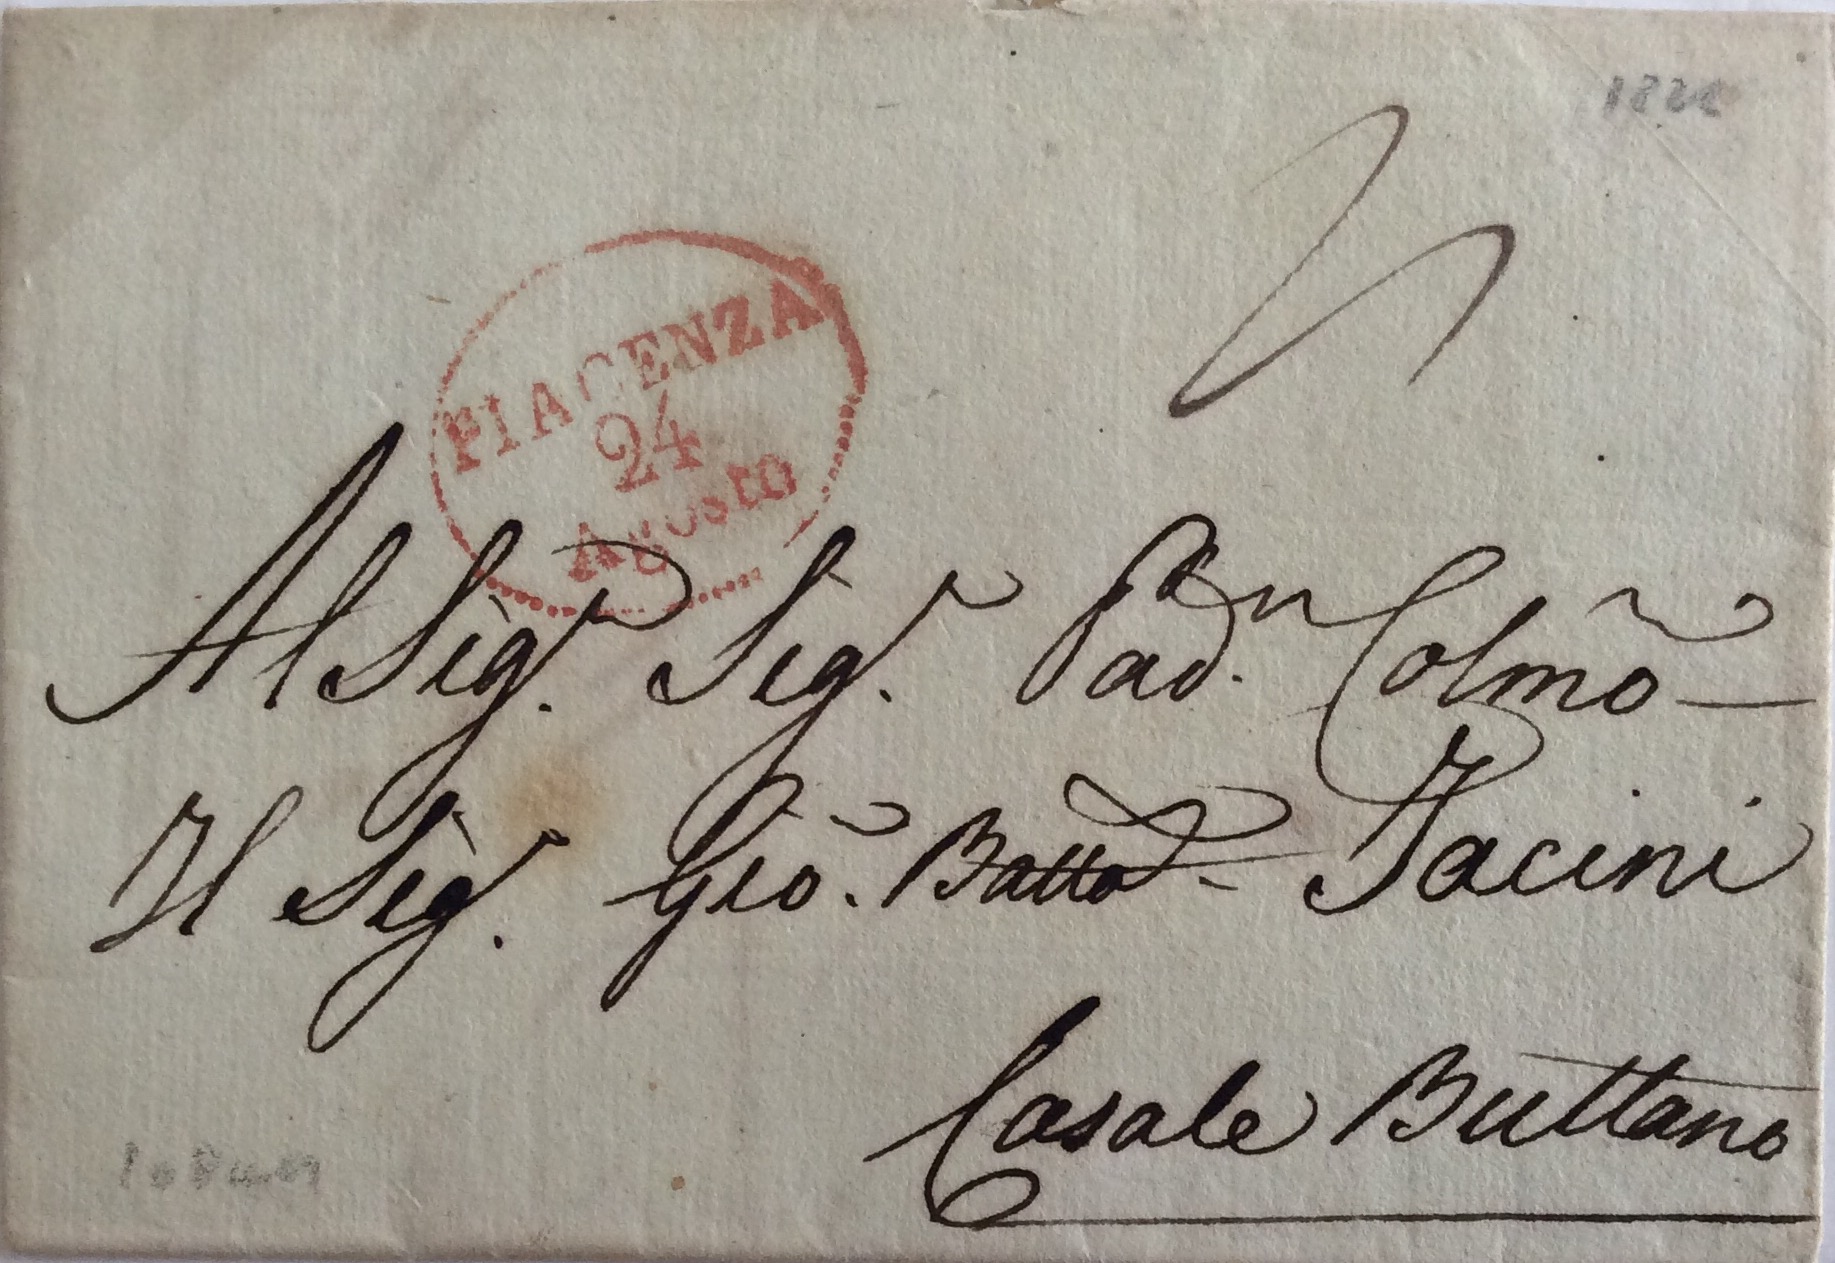 PIACENZA
24
Agosto
Al Sig.r Sig.r Pad.n Colmo
Il Sig.r Gio. Batta Jacini
Casale Buttano